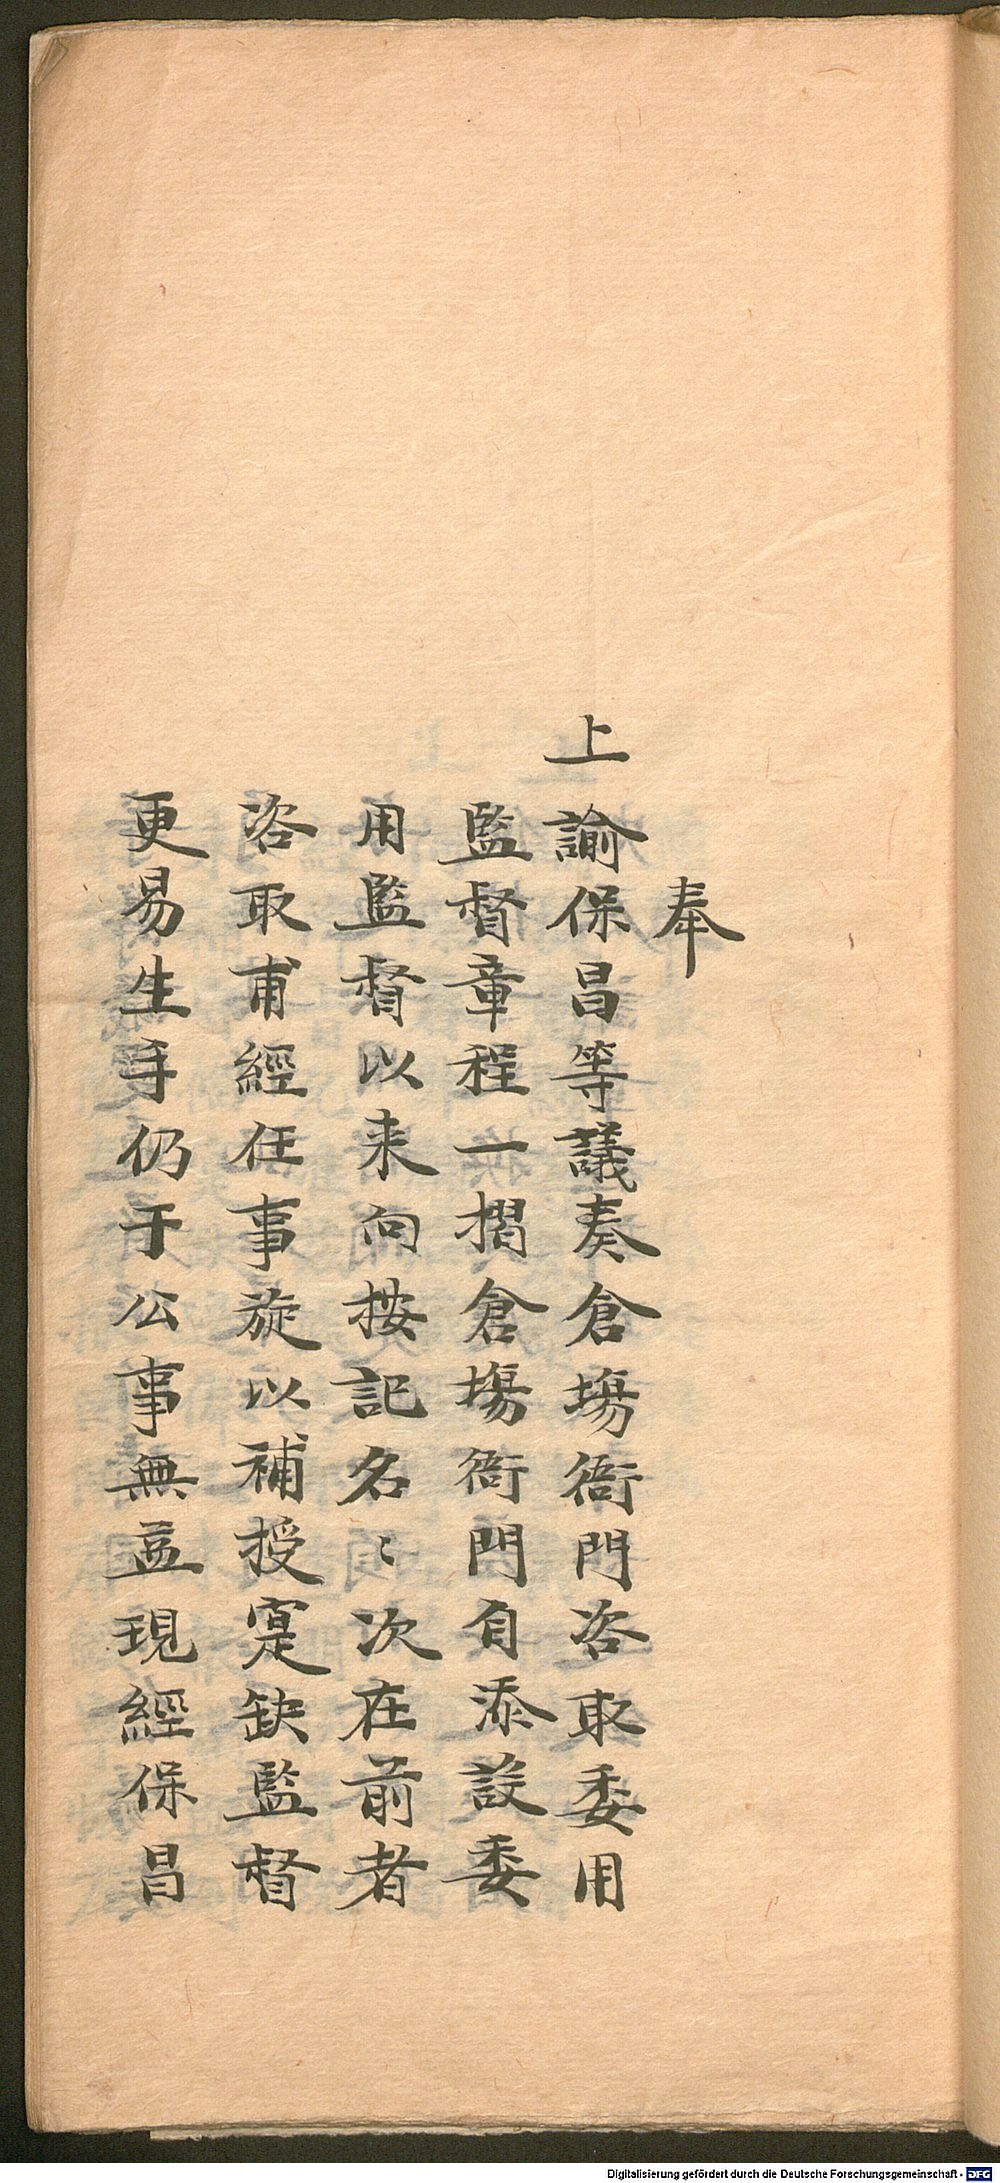 奉
上諭保昌等議奏倉塲衙門咨取委用
監督章程一摺倉塲衙門自添設委
用監督以来向按記名〻次在前者
咨取甫經任事旋以補授寔缺監督
更易生手仍于公事無益現經保昌
Digitalisierung gefördert durch die Deutsche Forschungsgemeinschaft - DFG